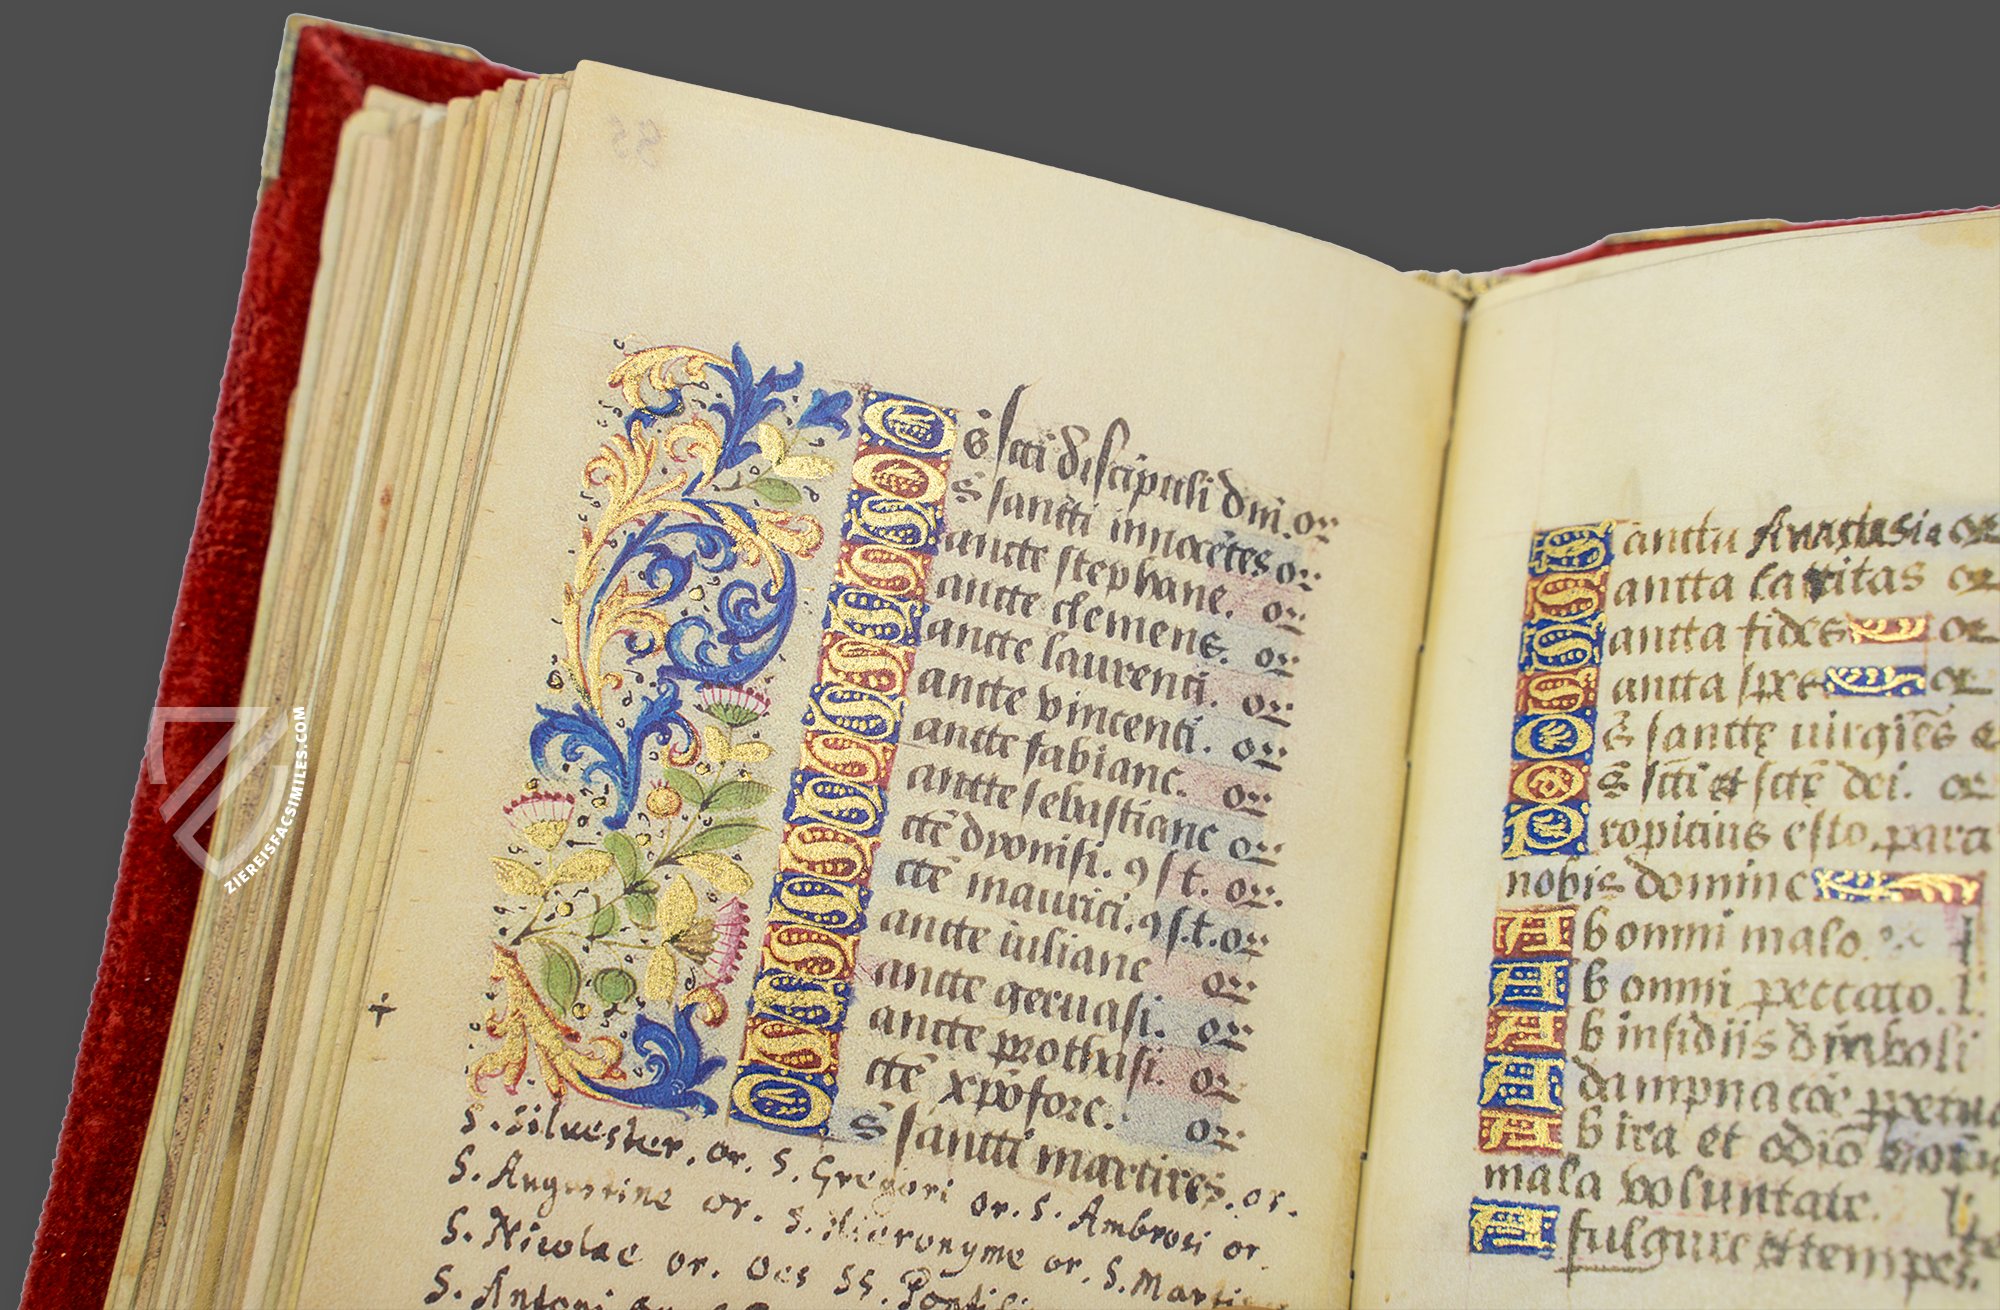 85
Os̃ scti discipuli dni. or
Os̃ sancti innocẽtes or
Sancte stephane. or
Sancte clemens. or
Sancte laurenti. or
Sancte vincenti. or
Sancte fabiane. or
Sancte sebastiane or
Sctẽ dyonisi. 9 s t. or
Sctẽ maurici. 9 s. t. or
Sancte iuliane or
Sancte geruasi. or
Sancte prothasi. or
Sctẽ xpõfore. or
Os̃ sancti martires. or.
S. Silvester. or. S. Gregori or. S. Ambrosi or.
S. Augustine or. S. Hieronyme or. S. Marti
S. Nicolae or. Oes SS. Pontifi
S. Antoni
Sancta Anastasia or
Sancta caritas or
Sancta fides or
Sancta spes or
Os̃ sanctę uirgiẽs
Os̃ scti et sctẽ dei. or
Propicius esto, parce
nobis domine
Ab omni malo. l
Ab omni peccato. l
Ab insidiis diaboli
A dampnacõe ppetua
Ab ira et odio
mala voluntate. l
A fulgure et tempes.
ZIEREISFACSIMILES.COM